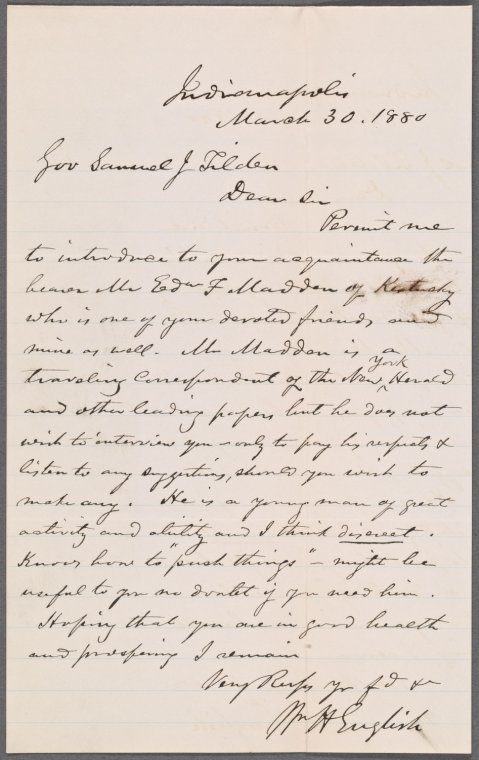 Indianapolis
March 30. 1880
Gov Samuel J Tilden
Dear Sir
Permit me
to introduce to your acquaintance the
bearer Mr Edw F Madden of Kentucky
who is one of your devoted friends and
mine as well. Mr Madden is a
traveling Correspondent of the New York Herald
and other leading papers but he does not
wish to interview you - only to pay his respects &
listen to any suggestions, should you wish to
make any. He is a young man of great
activity and ability and I think discreet.
Knows how to "push things" - might be
useful to you no doubt if you need him.
Hoping that you are in good health
and prospering I remain
Very Respy yr fd &c
Wm H English